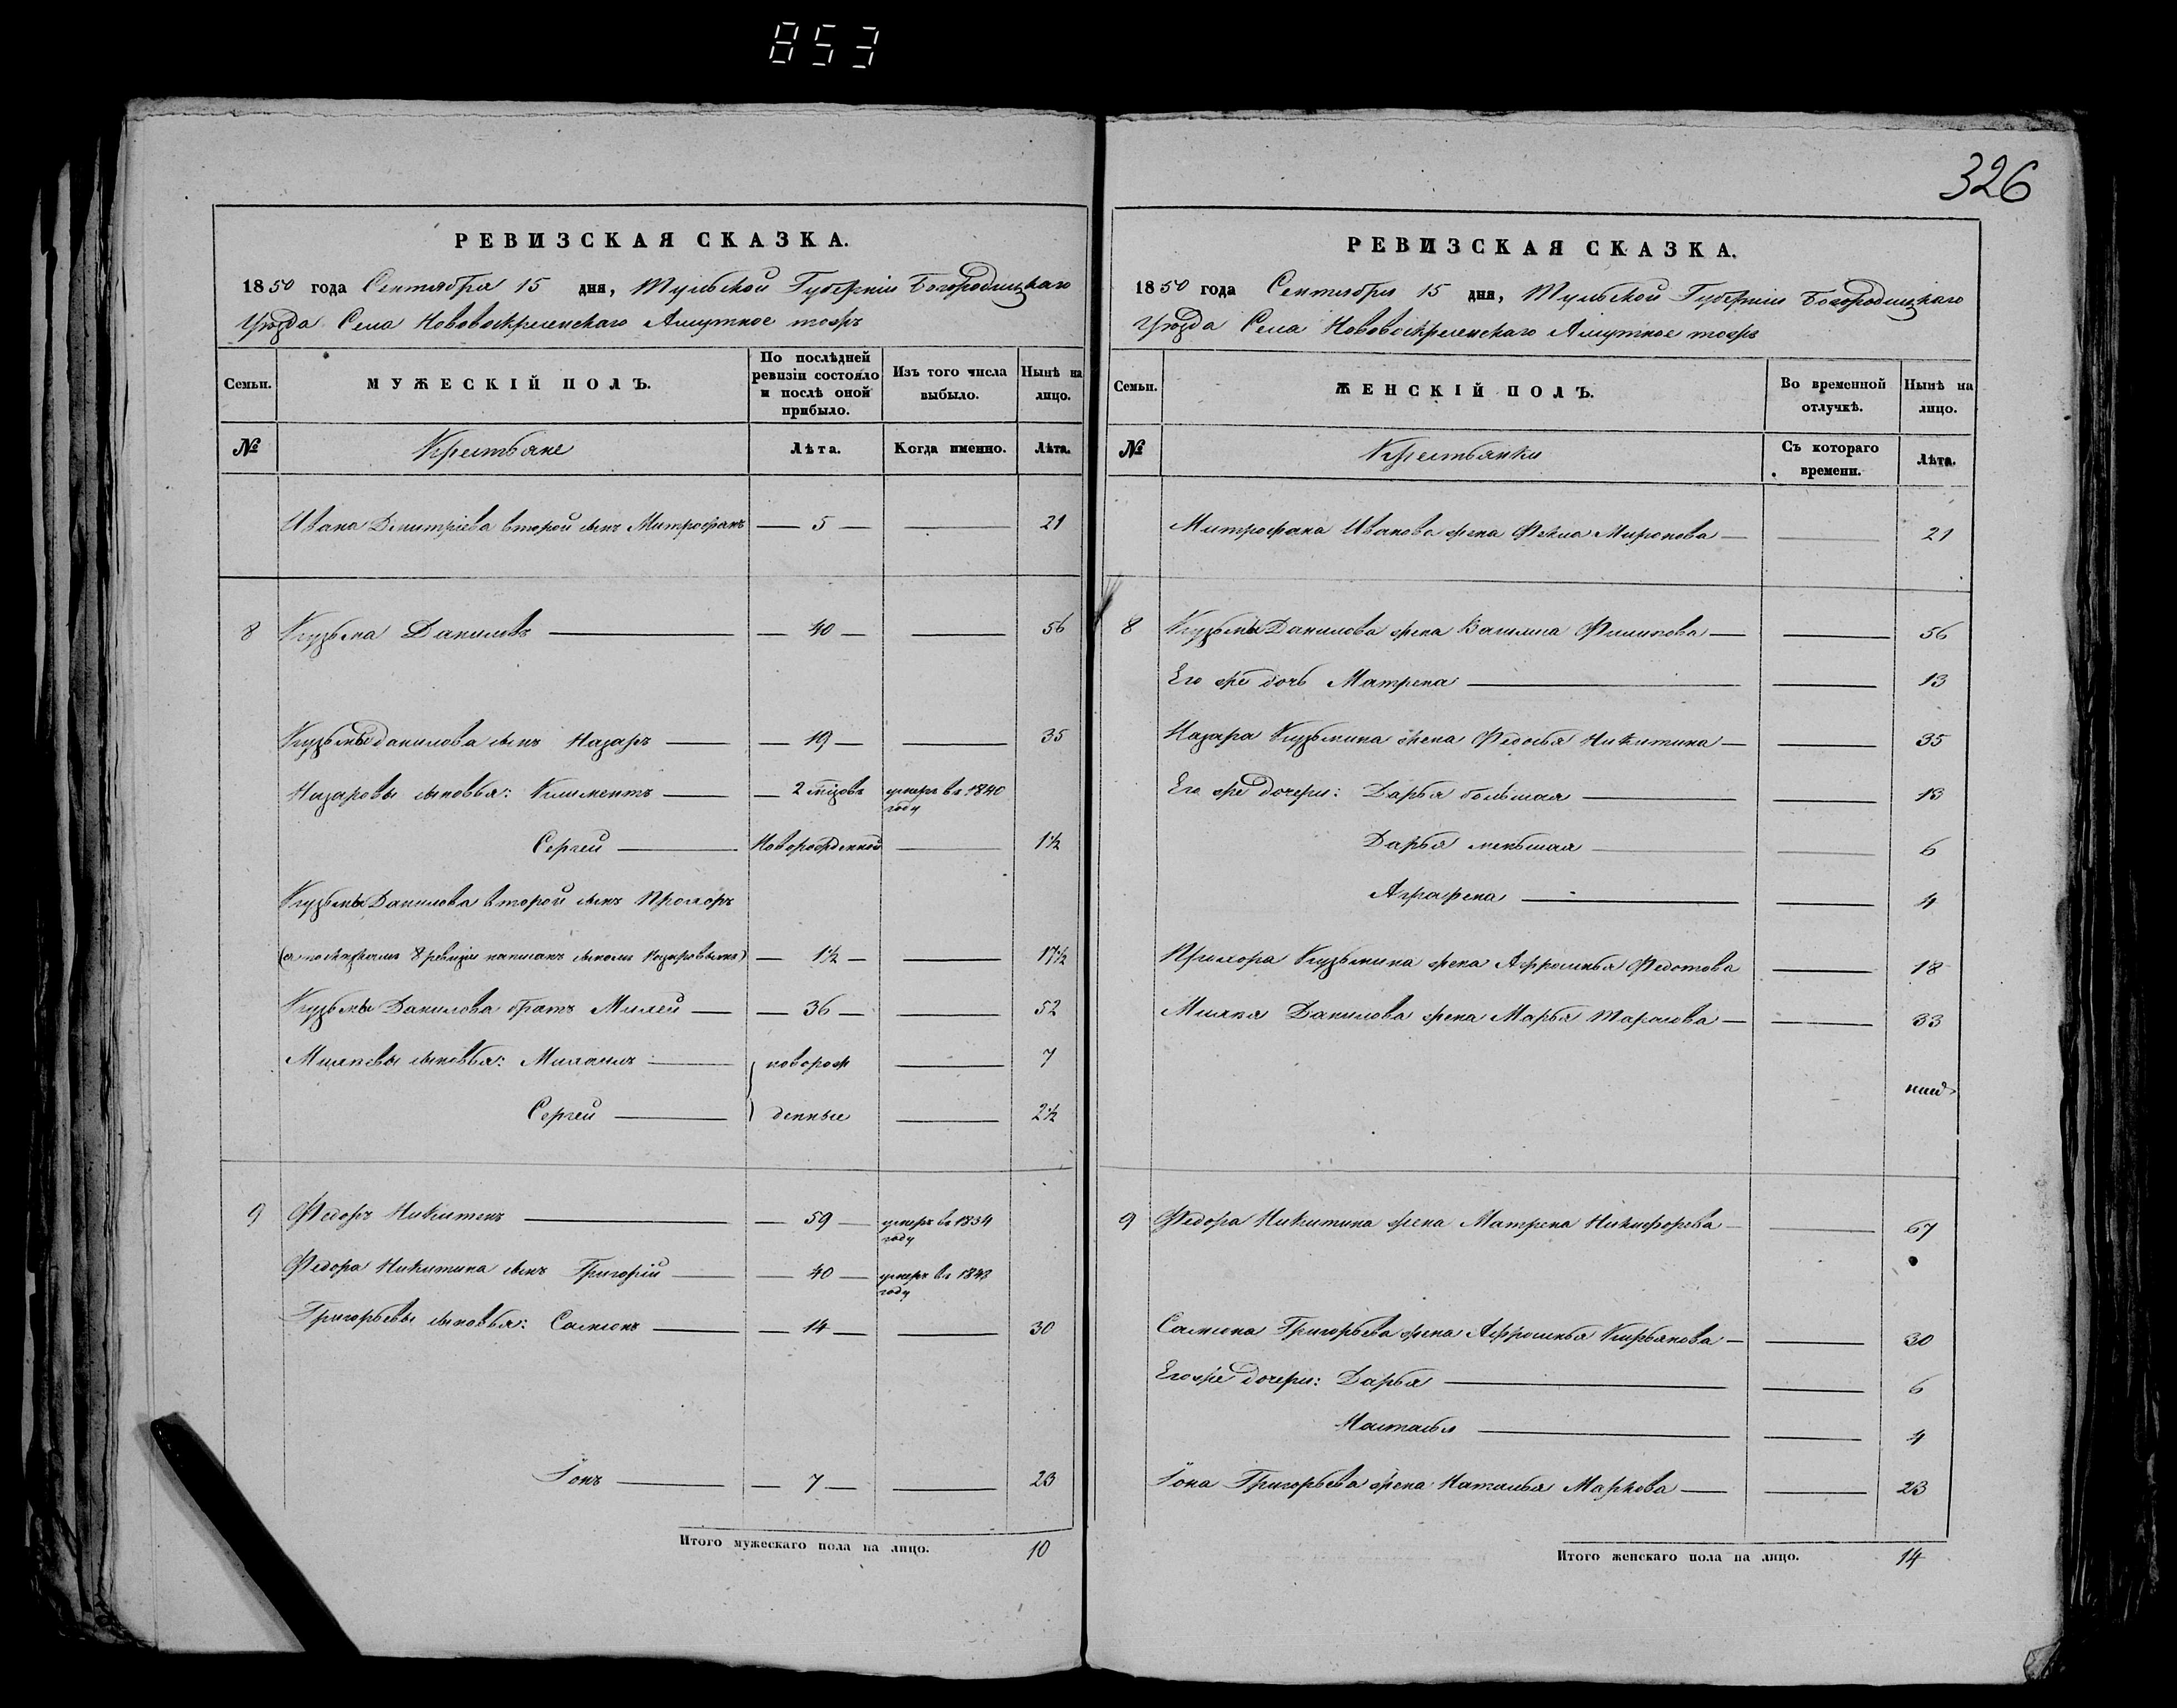 853
326
РЕВИЗСКАЯ СКАЗКА.
1850 года Сентября 15 дня, Тульской Губерніи Богородицкаго
Уѣзда Села Нововоскресенскаго тожъ
Семьи.
МУЖЕСКІЙ ПОЛЪ.
По послѣдней ревизіи состояло и послѣ оной прибыло.
Изъ того числа выбыло.
Нынѣ на лицо.
№
Крестьяне
Лѣта.
Когда именно.
Лѣта.
Ивана Дмитріева второй сынъ Митрофанъ — 5 — — 21
8 Кузьма Даниловъ — 40 — — 56
Кузьмы Данилова сынъ Назаръ — 19 — — 35
Назаровы сыновья: Климентъ — 2 умеръ въ 1840 году
Сергей — Новорожденной — 1½
Кузьмы Данилова второй сынъ Прохоръ
8 ревизіи написанъ сыномъ Назаровымъ) — 1½ — — 17½
Кузьмы Данилова братъ — 36 — — 52
сыновья: — новорож — 7
Сергей — денные — 2½
9 Федоръ Никитинъ — 59 — умеръ въ 1834 году
Федора Никитина сынъ Григорій — 40 — умеръ въ 1848 году
Григорьевы сыновья: Самсонъ — 14 — — 30
Іонъ — 7 — — 23
Итого мужескаго пола на лицо. 10
РЕВИЗСКАЯ СКАЗКА.
1850 года Сентября 15 дня, Тульской Губерніи Богородицкаго
Уѣзда Села Нововоскресенскаго тожъ
Семьи.
ЖЕНСКІЙ ПОЛЪ.
Во временной отлучкѣ.
Нынѣ на лицо.
№
Крестьянки
Съ котораго времени.
Лѣта.
Митрофана Иванова жена Фекла Миронова — — 21
8 Кузьмы Данилова жена Филипова — — 56
Его же дочь Матрена — — 13
Назара Кузьмина жена Федосья Никитина — — 35
Его же дочери: Дарья большая — — 13
Дарья меньшая — — 6
Аграфена — — 4
Прохора Кузьмина жена Афросинья Федотова — 18
Данилова жена Марья Тарасова — — 33
9 Федора Никитина жена Матрена Никифорова — — 67
Самсона Григорьева жена Афросинья Кирьянова — — 30
Его же дочери: Дарья — — 6
Настасья — — 4
Іона Григорьева жена Наталья Маркова — — 23
Итого женскаго пола на лицо. 14